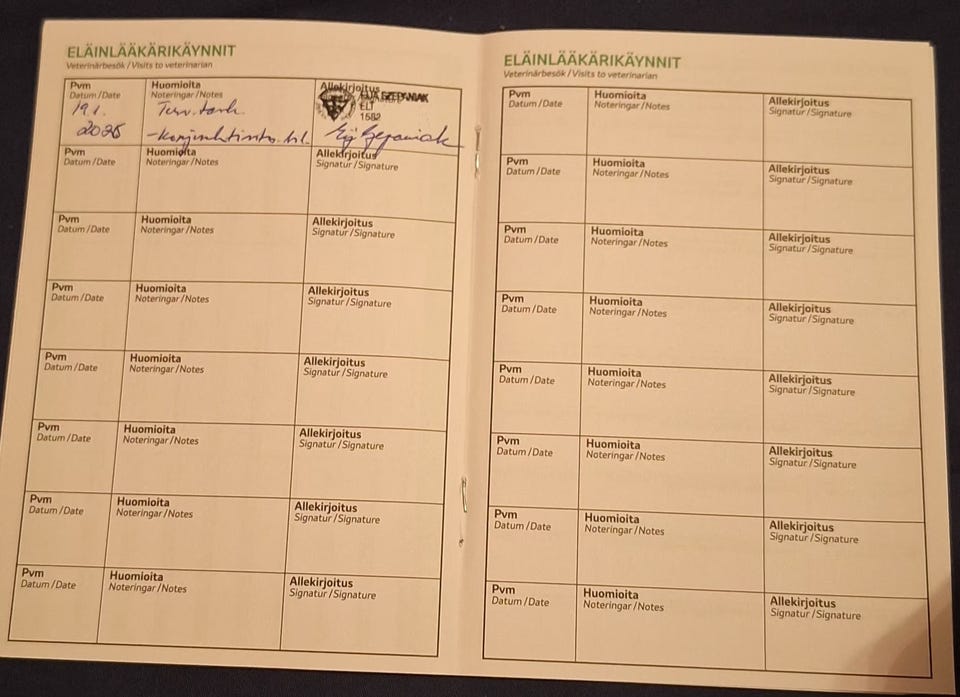 ELÄINLÄÄKÄRIKÄYNNIT
Veterinärbesök / Visits to veterinarian
Pvm Huomioita Allekirjoitus
Datum / Date Noteringar / Notes
19.1. Terv.tark. SZEPANIAK
ELT
1582
Pvm Huomioita Allekirjoitus
Datum / Date Noteringar / Notes Signatur / Signature
Pvm Huomioita Allekirjoitus
Datum / Date Noteringar / Notes Signatur / Signature
Pvm Huomioita Allekirjoitus
Datum / Date Noteringar / Notes Signatur / Signature
Pvm Huomioita Allekirjoitus
Datum / Date Noteringar / Notes Signatur / Signature
Pvm Huomioita Allekirjoitus
Datum / Date Noteringar / Notes Signatur / Signature
Pvm Huomioita Allekirjoitus
Datum / Date Noteringar / Notes Signatur / Signature
Pvm Huomioita Allekirjoitus
Datum / Date Noteringar / Notes Signatur / Signature
ELÄINLÄÄKÄRIKÄYNNIT
Veterinärbesök / Visits to veterinarian
Pvm Huomioita Allekirjoitus
Datum / Date Noteringar / Notes Signatur / Signature
Pvm Huomioita Allekirjoitus
Datum / Date Noteringar / Notes Signatur / Signature
Pvm Huomioita Allekirjoitus
Datum / Date Noteringar / Notes Signatur / Signature
Pvm Huomioita Allekirjoitus
Datum / Date Noteringar / Notes Signatur / Signature
Pvm Huomioita Allekirjoitus
Datum / Date Noteringar / Notes Signatur / Signature
Pvm Huomioita Allekirjoitus
Datum / Date Noteringar / Notes Signatur / Signature
Pvm Huomioita Allekirjoitus
Datum / Date Noteringar / Notes Signatur / Signature
Pvm Huomioita Allekirjoitus
Datum / Date Noteringar / Notes Signatur / Signature